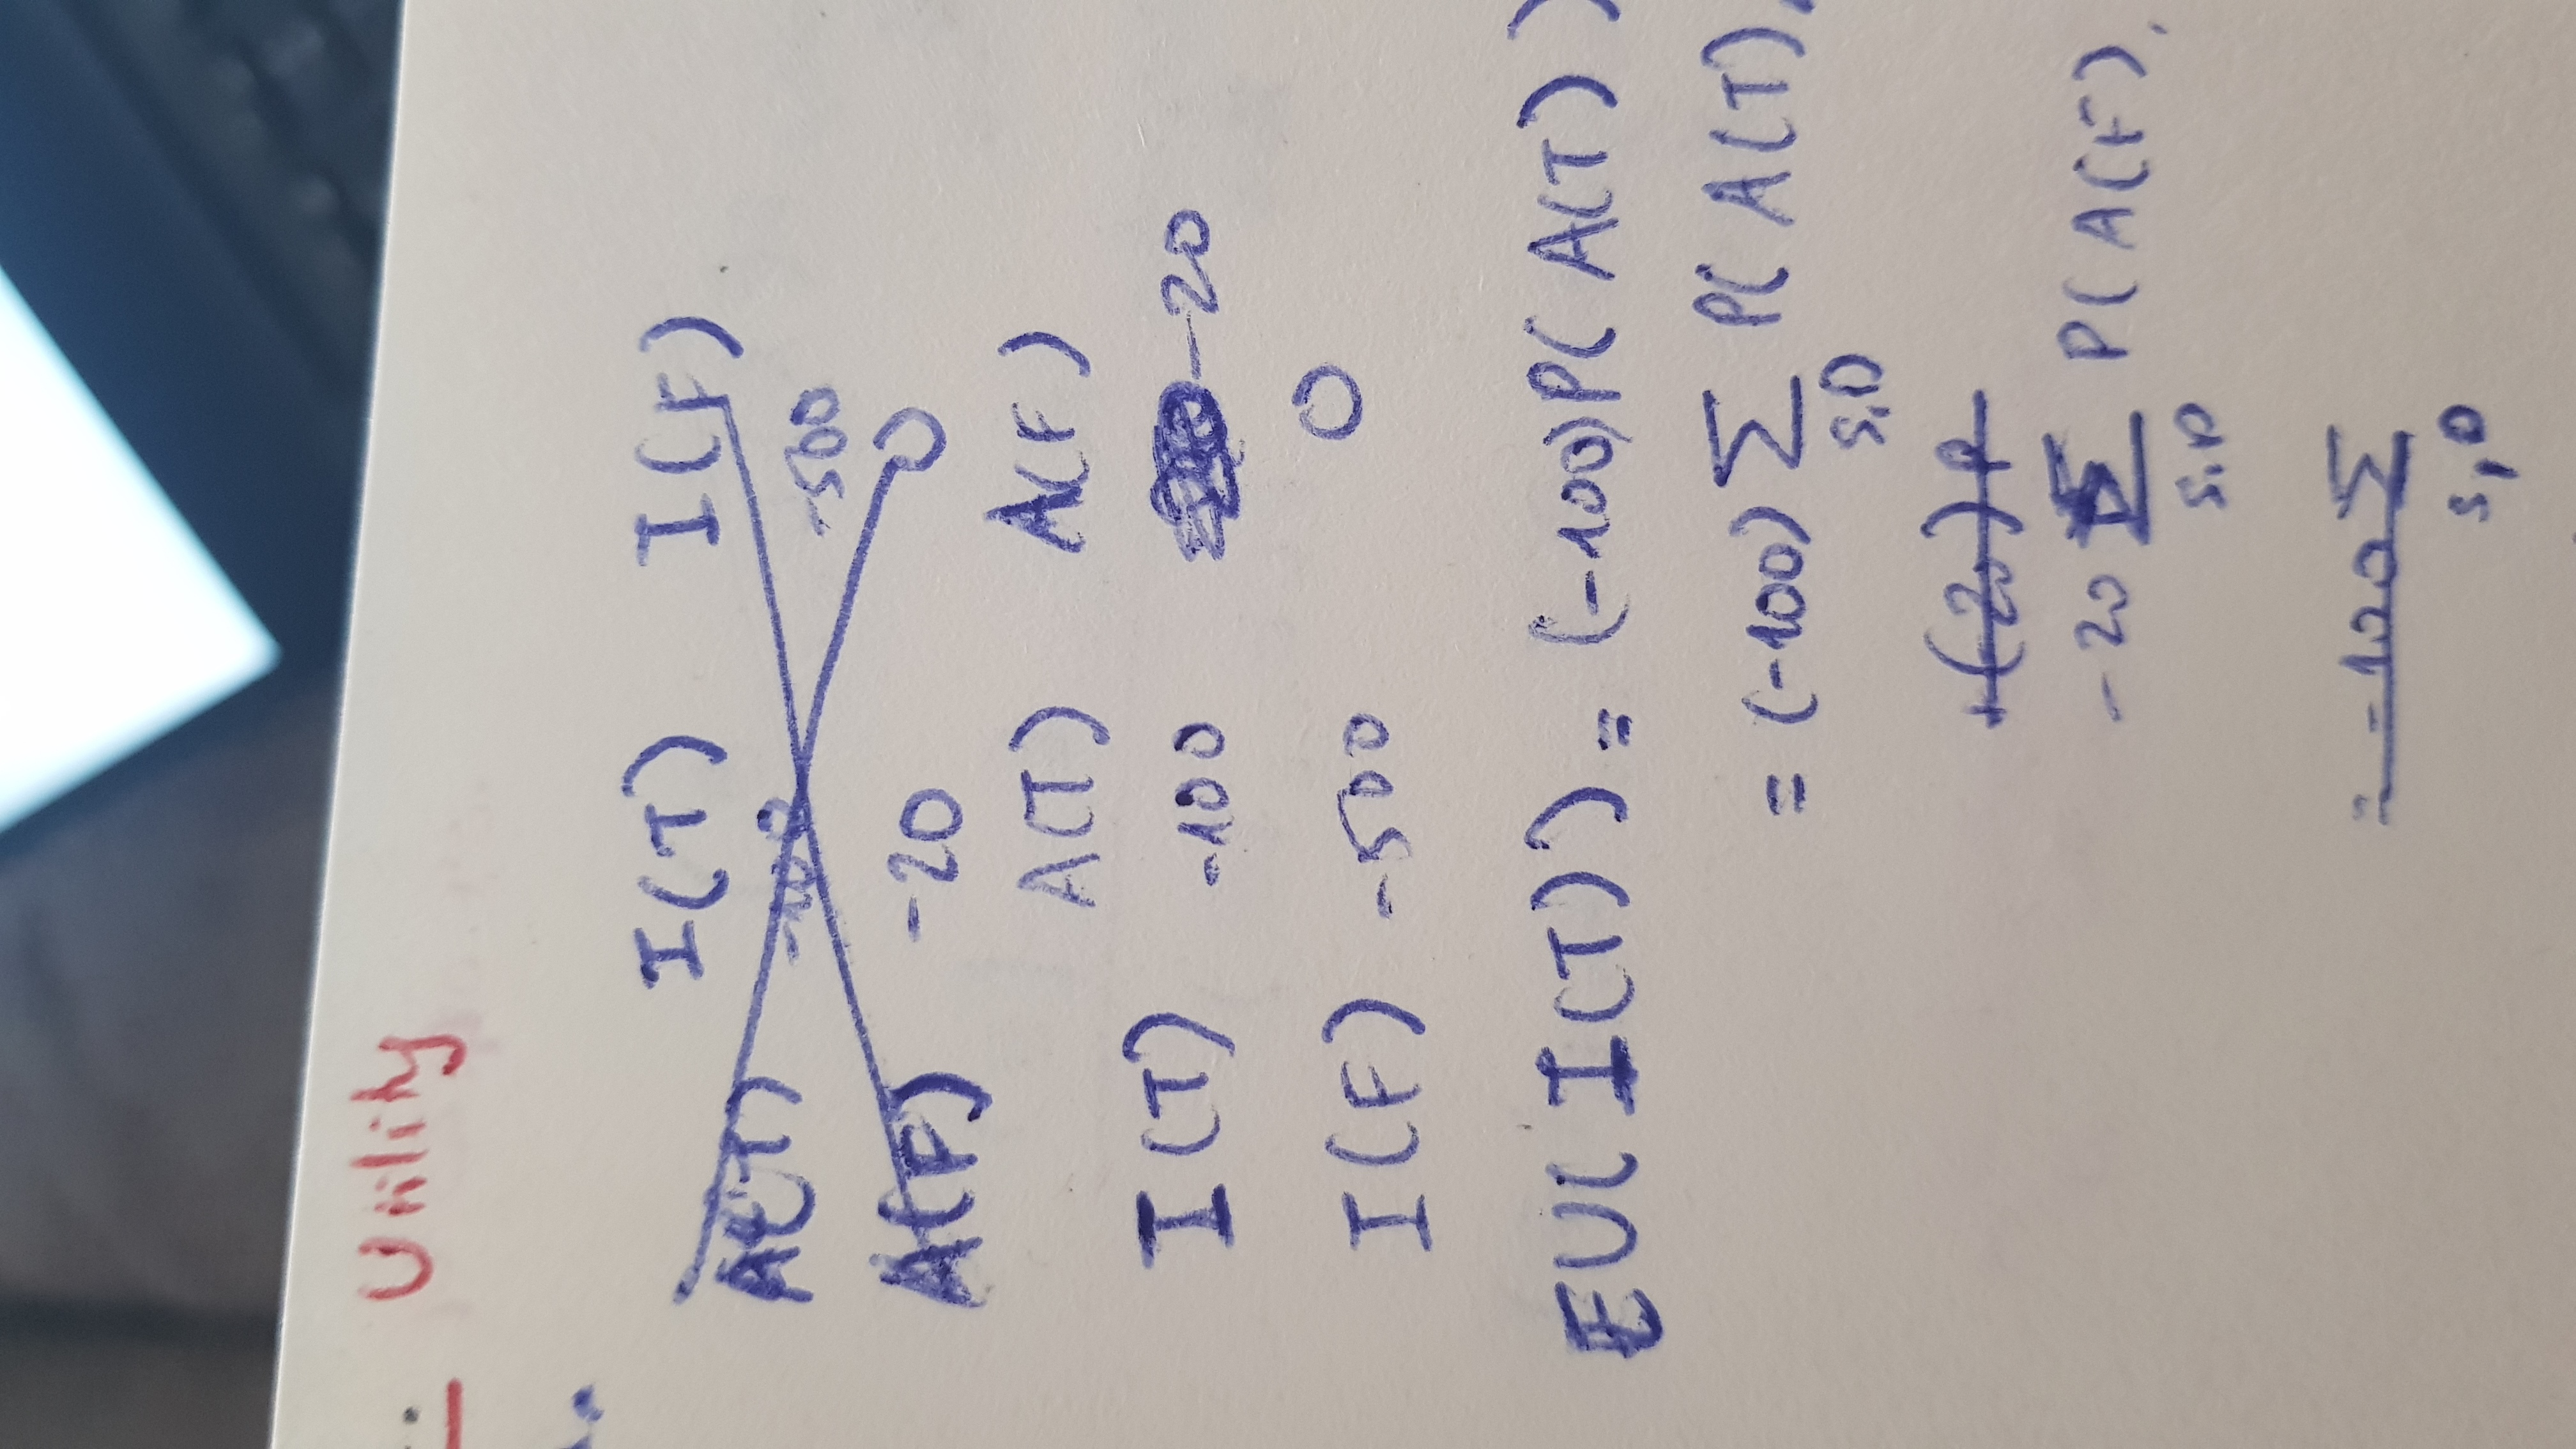 Utility
I(T) I(F)
A(T) -100 -500
A(F) -20 0
A(T) A(F)
I(T) -100 -20
I(F) -500 0
EU(I(T)) = (-100)P(A(T))
= (-100) Σ P(A(T),
S,D
+(20) P
-20 Σ P(A(F),
S,D
= -100 Σ
S,D